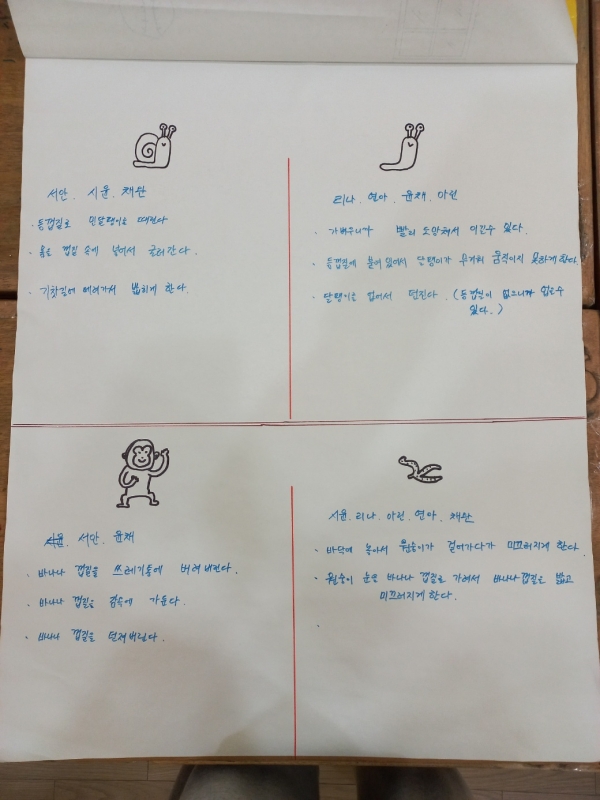 서안. 시윤. 채완
· 등껍질로 민달팽이를 때린다
· 몸을 껍질 속에 넣어서 굴러간다.
· 기찻길에 데려가서 밟히게 한다.
리나. 연아. 윤채. 아린
· 가벼우니까 빨리 도망쳐서 이길수 있다.
· 등껍질에 붙어 있어서 단팽이가 무거워 움직이지 못하게 한다.
· 달팽이를 업어서 던진다. (등껍질이 없으니까 업을수
있다.)
시윤. 서안. 윤채
· 바나나 껍질을 쓰레기통에 버려버린다.
· 바나나 껍질을 감속에 가둔다.
· 바나나 껍질을 던져버린다.
시윤. 리나. 아린. 연아. 채완
· 바닥에 놓아서 원숭이가 걸어가다가 미끄러지게 한다.
· 원숭이 눈을 바나나 껍질로 가려서 바나나 껍질을 밟고
미끄러지게 한다.